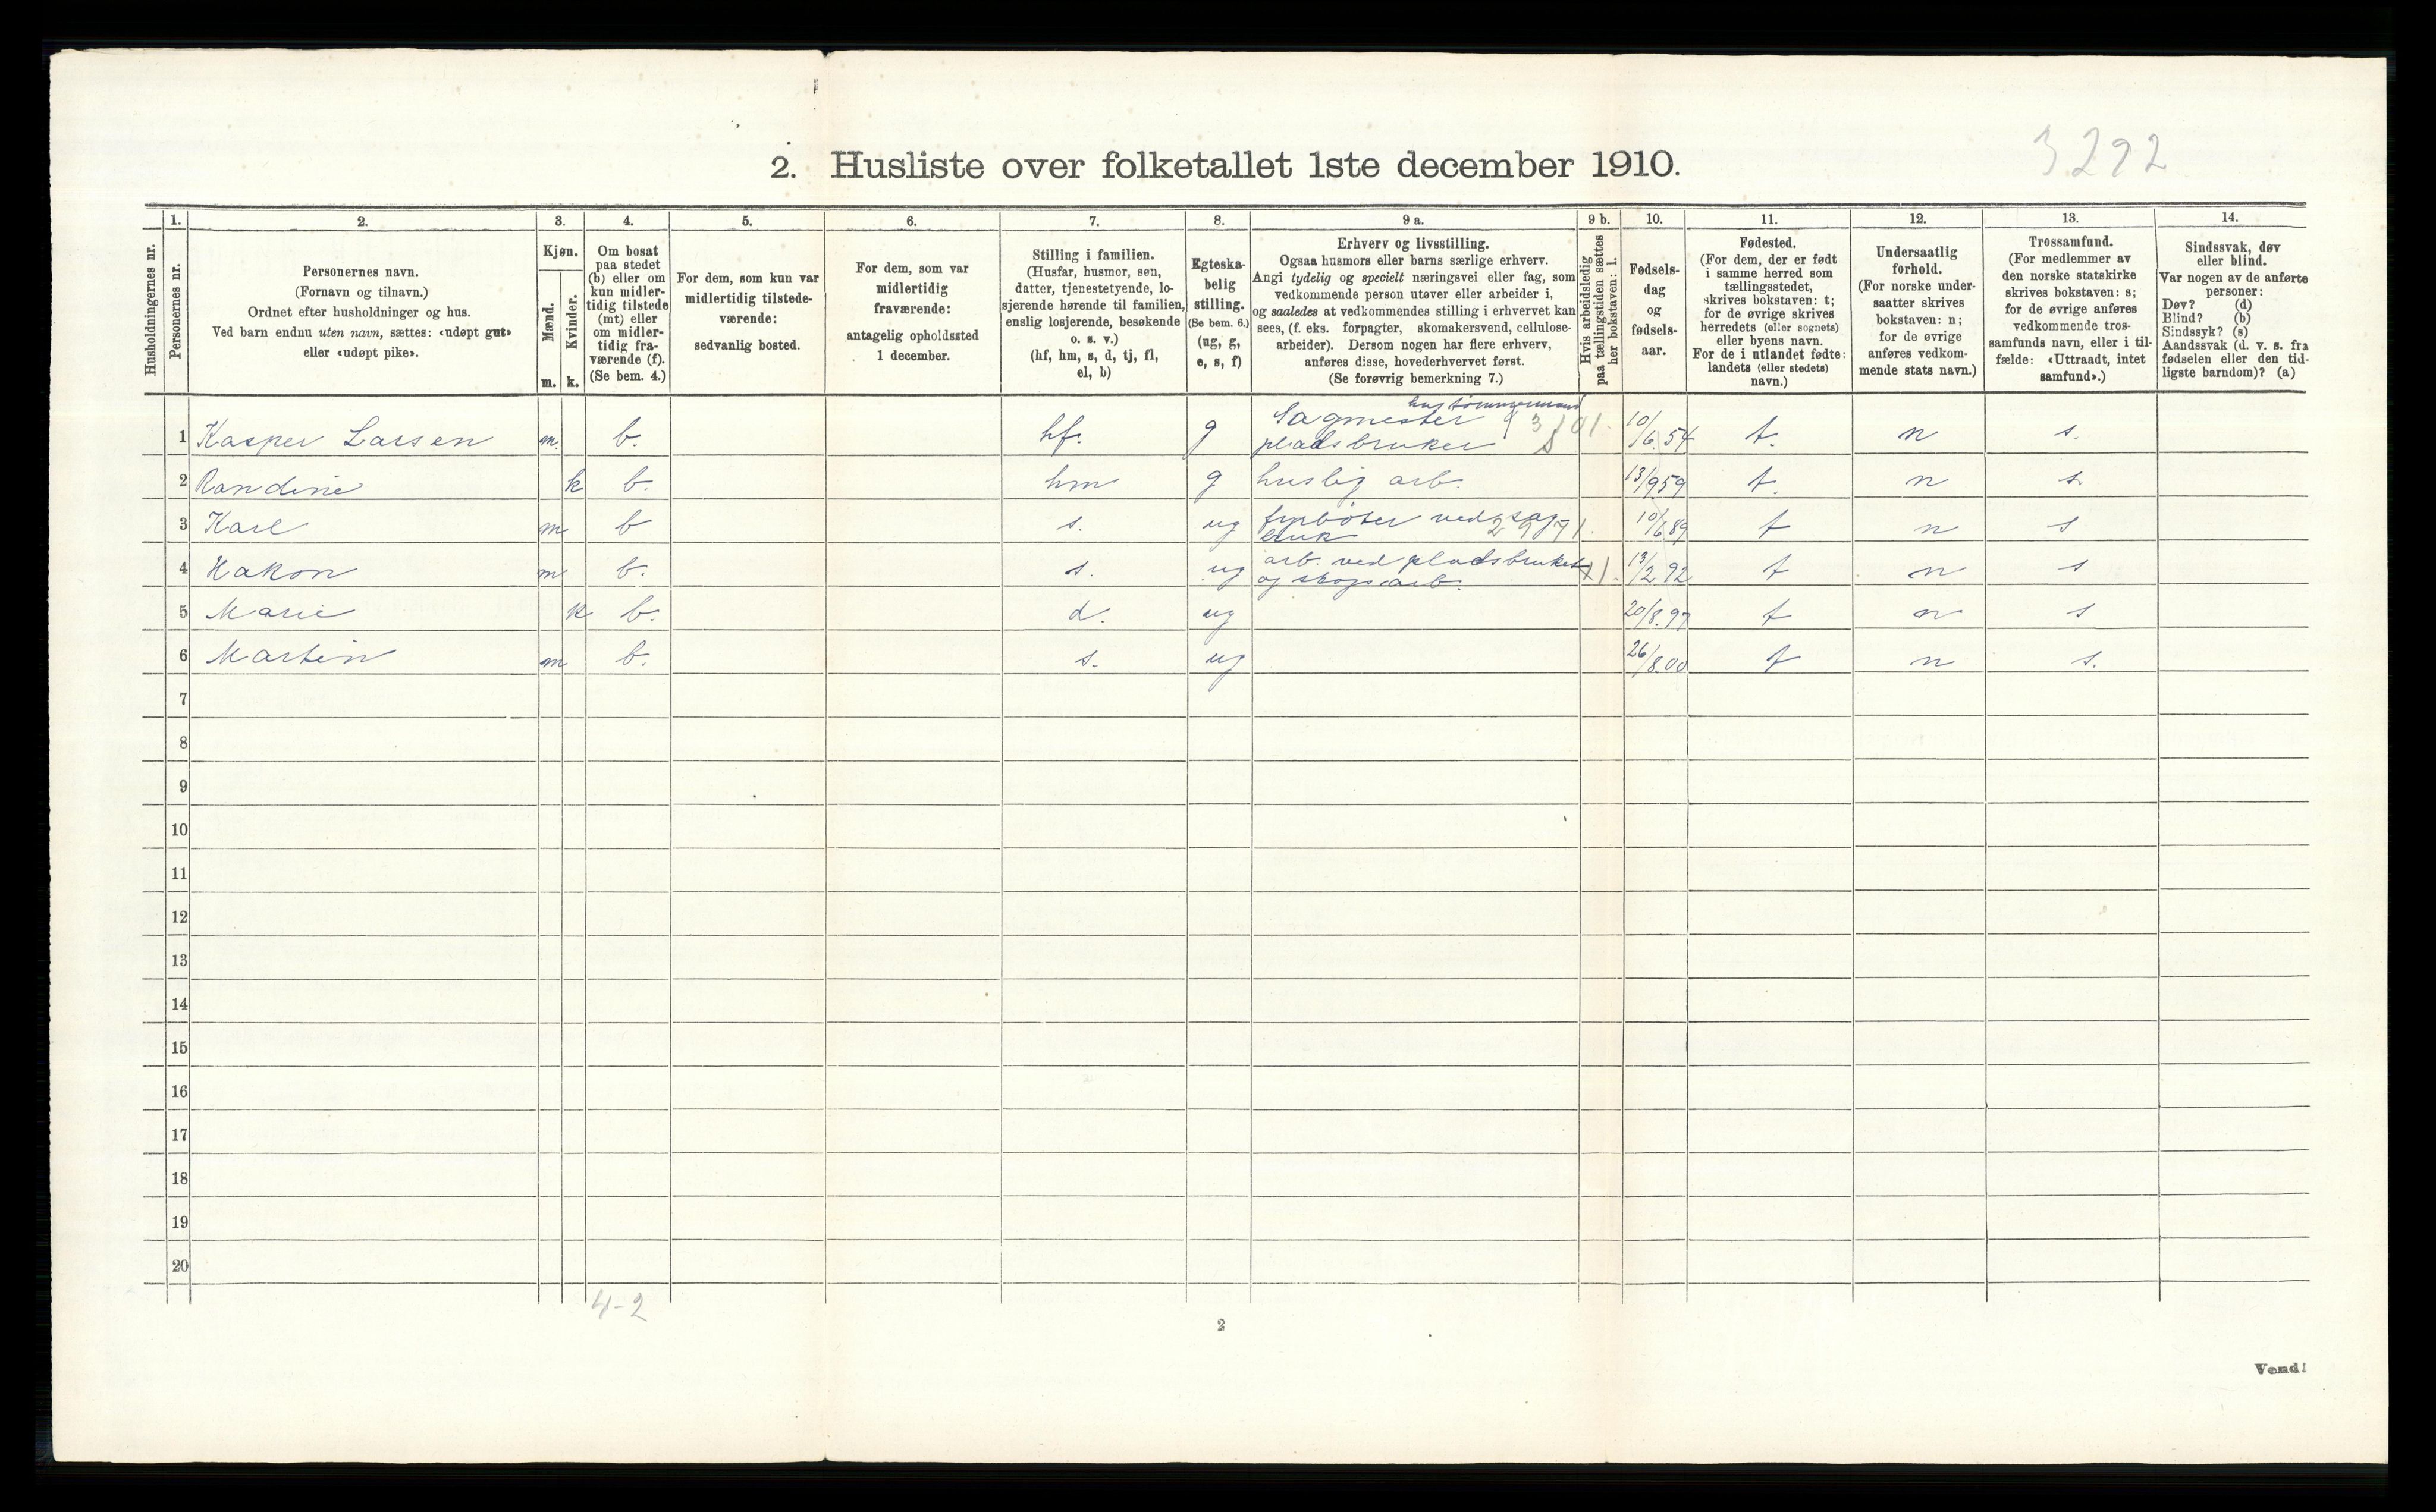 3.292
2. Husliste over folketallet 1ste december 1910.
1. 2. 3. 4. 5. 6. 7. 8. 9 a. 9 b. 10. 11. 12. 13. 14.
Husholdningernes nr.
Personernes nr.
Personernes navn.
(Fornavn og tilnavn.)
Ordnet efter husholdninger og hus.
Ved barn endnu uten navn, sættes: «udøpt gut»
eller «udøpt pike».
Kjøn.
Mænd.
Kvinder.
m. k.
Om bosat
paa stedet
(b) eller om
kun midler-
tidig tilstede
(mt) eller
om midler-
tidig fra-
værende (f).
(Se bem. 4.)
For dem, som kun var
midlertidig tilstede-
værende:
sedvanlig bosted.
For dem, som var
midlertidig
fraværende:
antagelig opholdssted
1 december.
Stilling i familien.
(Husfar, husmor, søn,
datter, tjenestetyende, lo-
sjerende hørende til familien,
enslig losjerende, besøkende
o. s. v.)
(hf, hm, s, d, tj, fl,
el, b)
Egteska-
belig
stilling.
(Se bem. 6.)
(ug, g,
e, s, f)
Erhverv og livsstilling.
Ogsaa husmors eller barns særlige erhverv.
Angi tydelig og specielt næringsvei eller fag, som
vedkommende person utøver eller arbeider i,
og saaledes at vedkommendes stilling i erhvervet kan
sees, (f. eks. forpagter, skomakersvend, cellulose-
arbeider). Dersom nogen har flere erhverv,
anføres disse, hovederhvervet først.
(Se forøvrig bemerkning 7.)
Hvis arbeidsledig
paa tællingstiden sættes
her bokstaven: l.
Fødsels-
dag
og
fødsels-
aar.
Fødested.
(For dem, der er født
i samme herred som
tællingsstedet,
skrives bokstaven: t;
for de øvrige skrives
herredets (eller sognets)
eller byens navn.
For de i utlandet fødte:
landets (eller stedets)
navn.)
Undersaatlig
forhold.
(For norske under-
saatter skrives
bokstaven: n;
for de øvrige
anføres vedkom-
mende stats navn.)
Trossamfund.
(For medlemmer av
den norske statskirke
skrives bokstaven: s;
for de øvrige anføres
vedkommende tros-
samfunds navn, eller i til-
fælde: «Uttraadt, intet
samfund».)
Sindssvak, døv
eller blind.
Var nogen av de anførte
personer:
Døv? (d)
Blind? (b)
Sindssyk? (s)
Aandssvak (d. v. s. fra
fødselen eller den tid-
ligste barndom)? (a)
1 Kasper Larsen m. b. hf. g Sagmester hustømmermand
pladsbruker 10/6.54 t. n s.
2 Randine k b. hm g huslig arb. 13/9.59 t. n s.
3 Karl m b s. ug fyrbøter ved sag-
bruk 10/6.89 t n s
4 Hakon m b. s. ug arb. ved pladsbruket
og skogsarb. 13/2.92 t n s
5 Marie k b. d. ug 20/8.97 t n s
6 Martin m b. s. ug 26/8.00 t n s.
7
8
9
10
11
12
13
14
15
16
17
18
19
20
4-2
2
Vend!